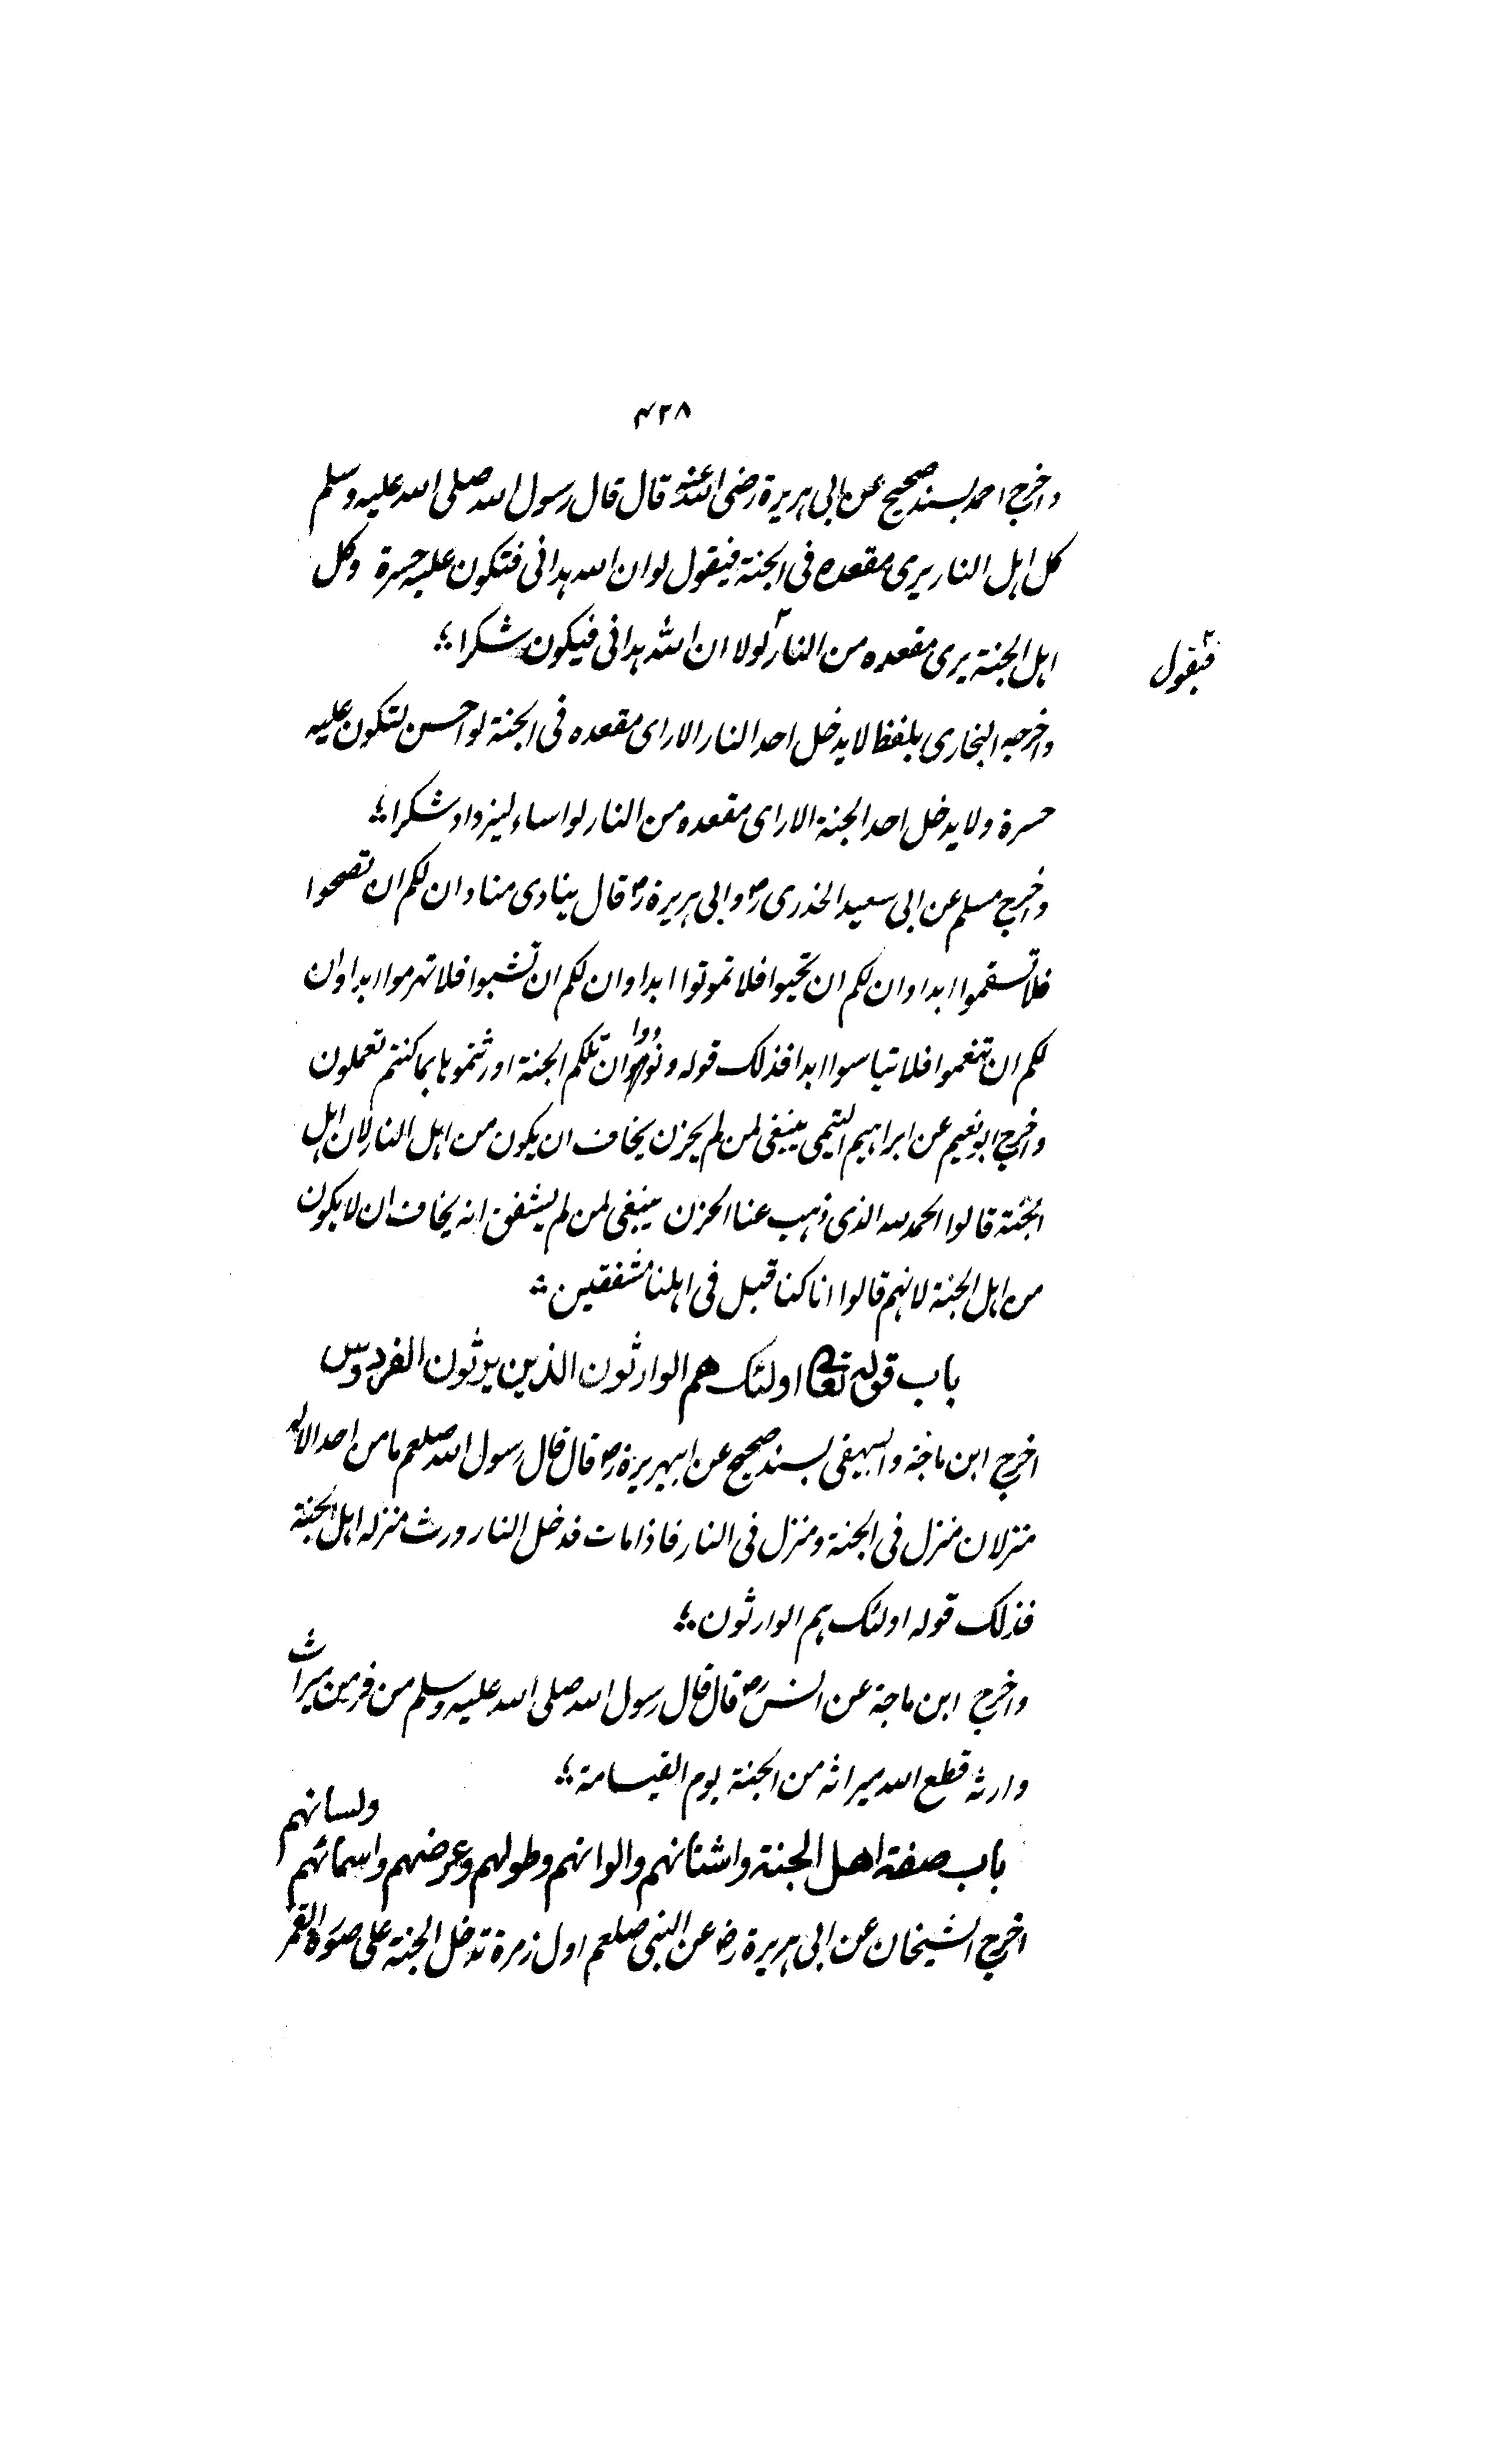 ۴۲۸
واخرج احمد بسند صحيح عن ابى هريرة رضى الله عنه قال قال رسول الله صلى الله عليه وسلم
كل اهل النار يرى مقعده فى الجنة فيقول لو ان الله هدانى فتكون عليه حسرة وكل
اهل الجنة يرى مقعده من النار لولا ان الله هدانى فيكون شكرا
فيقول
واخرجه البخارى بلفظ لا يدخل احد النار الا راى مقعده فى الجنة لو احسن لتكون عليه
حسرة ولا يدخل احد الجنة الا راى مقعده من النار لو اساء ليزداد شكرا
واخرج مسلم عن ابى سعيد الخدرى رض وابى هريرة رض قال ينادى مناد ان لكم ان تصحوا
فلا تسقموا ابدا وان لكم ان تحيوا فلا تموتوا ابدا وان لكم ان تشبوا فلا تهرموا ابدا وان
لكم ان تنعموا فلا تياسوا ابدا فذلك قوله ونودوا ان تلكم الجنة اورثتموها بما كنتم تعملون
واخرج ابو نعيم عن ابراهيم التيمى ينبغى لمن لم يحزن يخاف ان يكون من اهل النار لان اهل
الجنة قالوا الحمد لله الذى ذهب عنا الحزن ينبغى لمن لم يشفق انه يخاف ان لا يكون
من اهل الجنة لانهم قالوا انا كنا قبل فى اهلنا مشفقين
باب قوله تعالى اولئك هم الوارثون الذين يرثون الفردوس
اخرج ابن ماجة والبيهقى بسند صحيح عن ابيهريرة رض قال قال رسول الله صلعم ما من احد الا له
منزلان منزل فى الجنة ومنزل فى النار فاذا مات فدخل النار ورث منزله اهل الجنة
فذلك قوله اولئك هم الوارثون
واخرج ابن ماجة عن انس رض قال قال رسول الله صلى الله عليه وسلم من فر من ميراث
وارثه قطع الله ميراثه من الجنة يوم القيامة
باب صفة اهل الجنة واسنانهم والوانهم وطولهم وعرضهم واسمائهم ولسانهم
اخرج الشيخان عن ابى هريرة رض عن النبى صلعم اول زمرة تدخل الجنة على صورة القمر